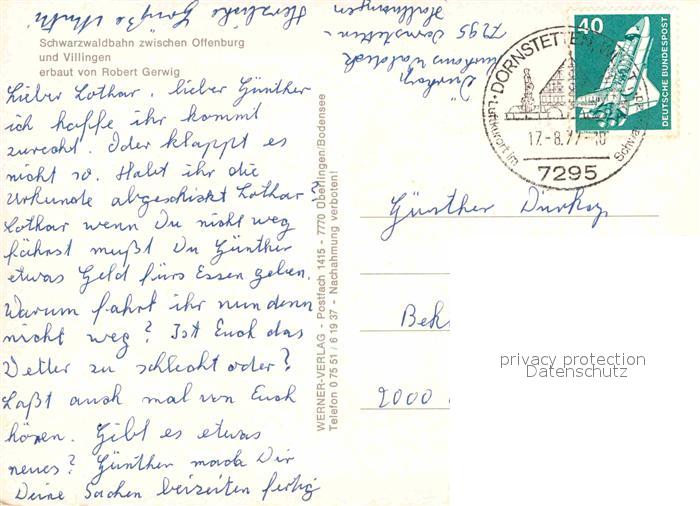 Schwarzwaldbahn zwischen Offenburg
und Villingen
erbaut von Robert Gerwig
Lieber Lothar, lieber Günther
ich hoffe ihr kommt
zurecht. Oder klappt es
nicht so. Habt ihr die
Urkunde abgeschickt Lothar?
Lothar wenn Du nicht weg
fährst mußt Du Günther
etwas Geld fürs Essen geben.
Warum fahrt ihr nun denn
nicht weg? Ist Euch das
Wetter zu schlecht oder?
Laßt auch mal von Euch
hören. Gibt es etwas
neues? Günther mach Dir
Deine Sachen beizeiten fertig
Herzliche Grüße Mutti
WERNER-VERLAG - Postfach 1415 - 7770 Überlingen/Bodensee
Telefon 0 75 51 / 6 19 37 - Nachahmung verboten!
7295 Dornstetten-
Hallwangen
DORNSTETTEN
Luftkurort im
17.-8.77-10
7295
40
DEUTSCHE BUNDESPOST
Günther
2000
privacy protection
Datenschutz